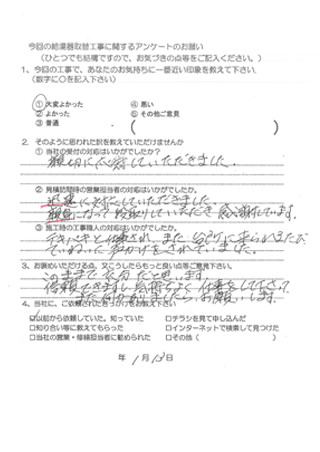 今回の給湯器取替工事に関するアンケートのお願い
(ひとつでも結構ですので、お気づきの点等をご記入ください。)
1、今回の工事で、あなたのお気持ちに一番近い印象を教えて下さい。
(数字に○を記入下さい)
① 大変よかった ④ 悪い
② よかった ⑤ その他ご意見
③ 普通 ( )
2、そのように思われた訳を教えていただけませんか
① 当社の受付の対応はいかがでしたか?
親切に応対していただきました。
② 見積訪問時の営業担当者の対応はいかがでしたか。
迅速に対応していただきました。
親身になって段取りしていただき感謝しています。
③ 施工時の工事職人の対応はいかがでしたか?
テキパキと仕事され、また
声かけをされていました。
3、お褒めいただける点、又こうしたらもっと良い点等ご意見。
このままで充分だと思います。
信頼できますし気持ちよく仕事をして下さって
また何かありましたらお願いします。
4、当社に、ご依頼されたきっかけをお教え下さい
□以前から依頼していた。知っていた □チラシを見て申し込んだ
□知り合い等に教えてもらった □インターネットで検索して見つけた
□当社の営業・修繕担当者に勧められた □その他( )
年 1月13日